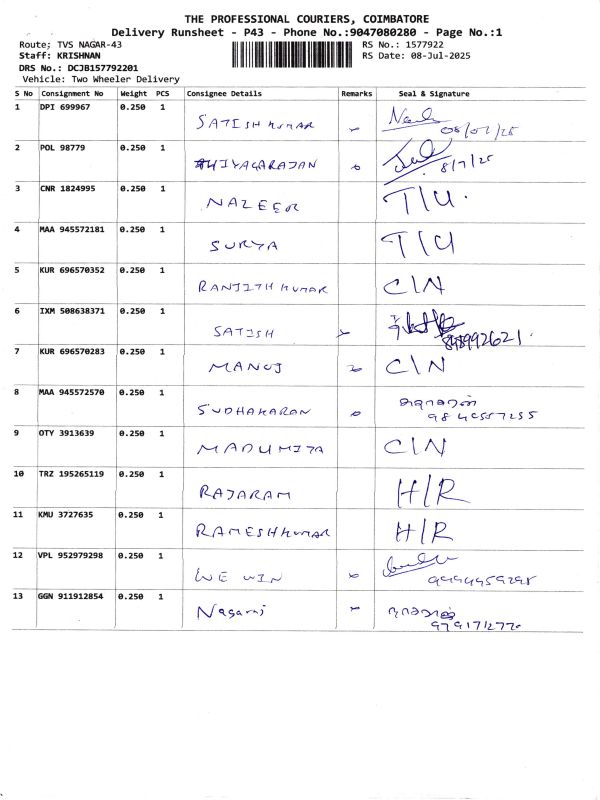 THE PROFESSIONAL COURIERS, COIMBATORE
Delivery Runsheet - P43 - Phone No.:9047080280 - Page No.:1
Route; TVS NAGAR-43 RS No.: 1577922
Staff: KRISHNAN RS Date: 08-Jul-2025
DRS No.: DCJB157792201
Vehicle: Two Wheeler Delivery
S No Consignment No Weight PCS Consignee Details Remarks Seal & Signature
1 DPI 699967 0.250 1 SATISH KUMAR 08/07/25
2 POL 98779 0.250 1 THIYAGARAJAN 8/7/25
3 CNR 1824995 0.250 1 NAZEER T/U.
4 MAA 945572181 0.250 1 SURYA T/U
5 KUR 696570352 0.250 1 RANJITH KUMAR C\N
6 IXM 508638371 0.250 1 SATISH
7 KUR 696570283 0.250 1 MANOJ C\N
8 MAA 945572570 0.250 1 SUDHAKARAN
9 OTY 3913639 0.250 1 MADUMITA C\N
10 TRZ 195265119 0.250 1 RAJARAM H/R
11 KMU 3727635 0.250 1 RAMESHKUMAR H/R
12 VPL 952979298 0.250 1 WE WIN
13 GGN 911912854 0.250 1 Nagaraj